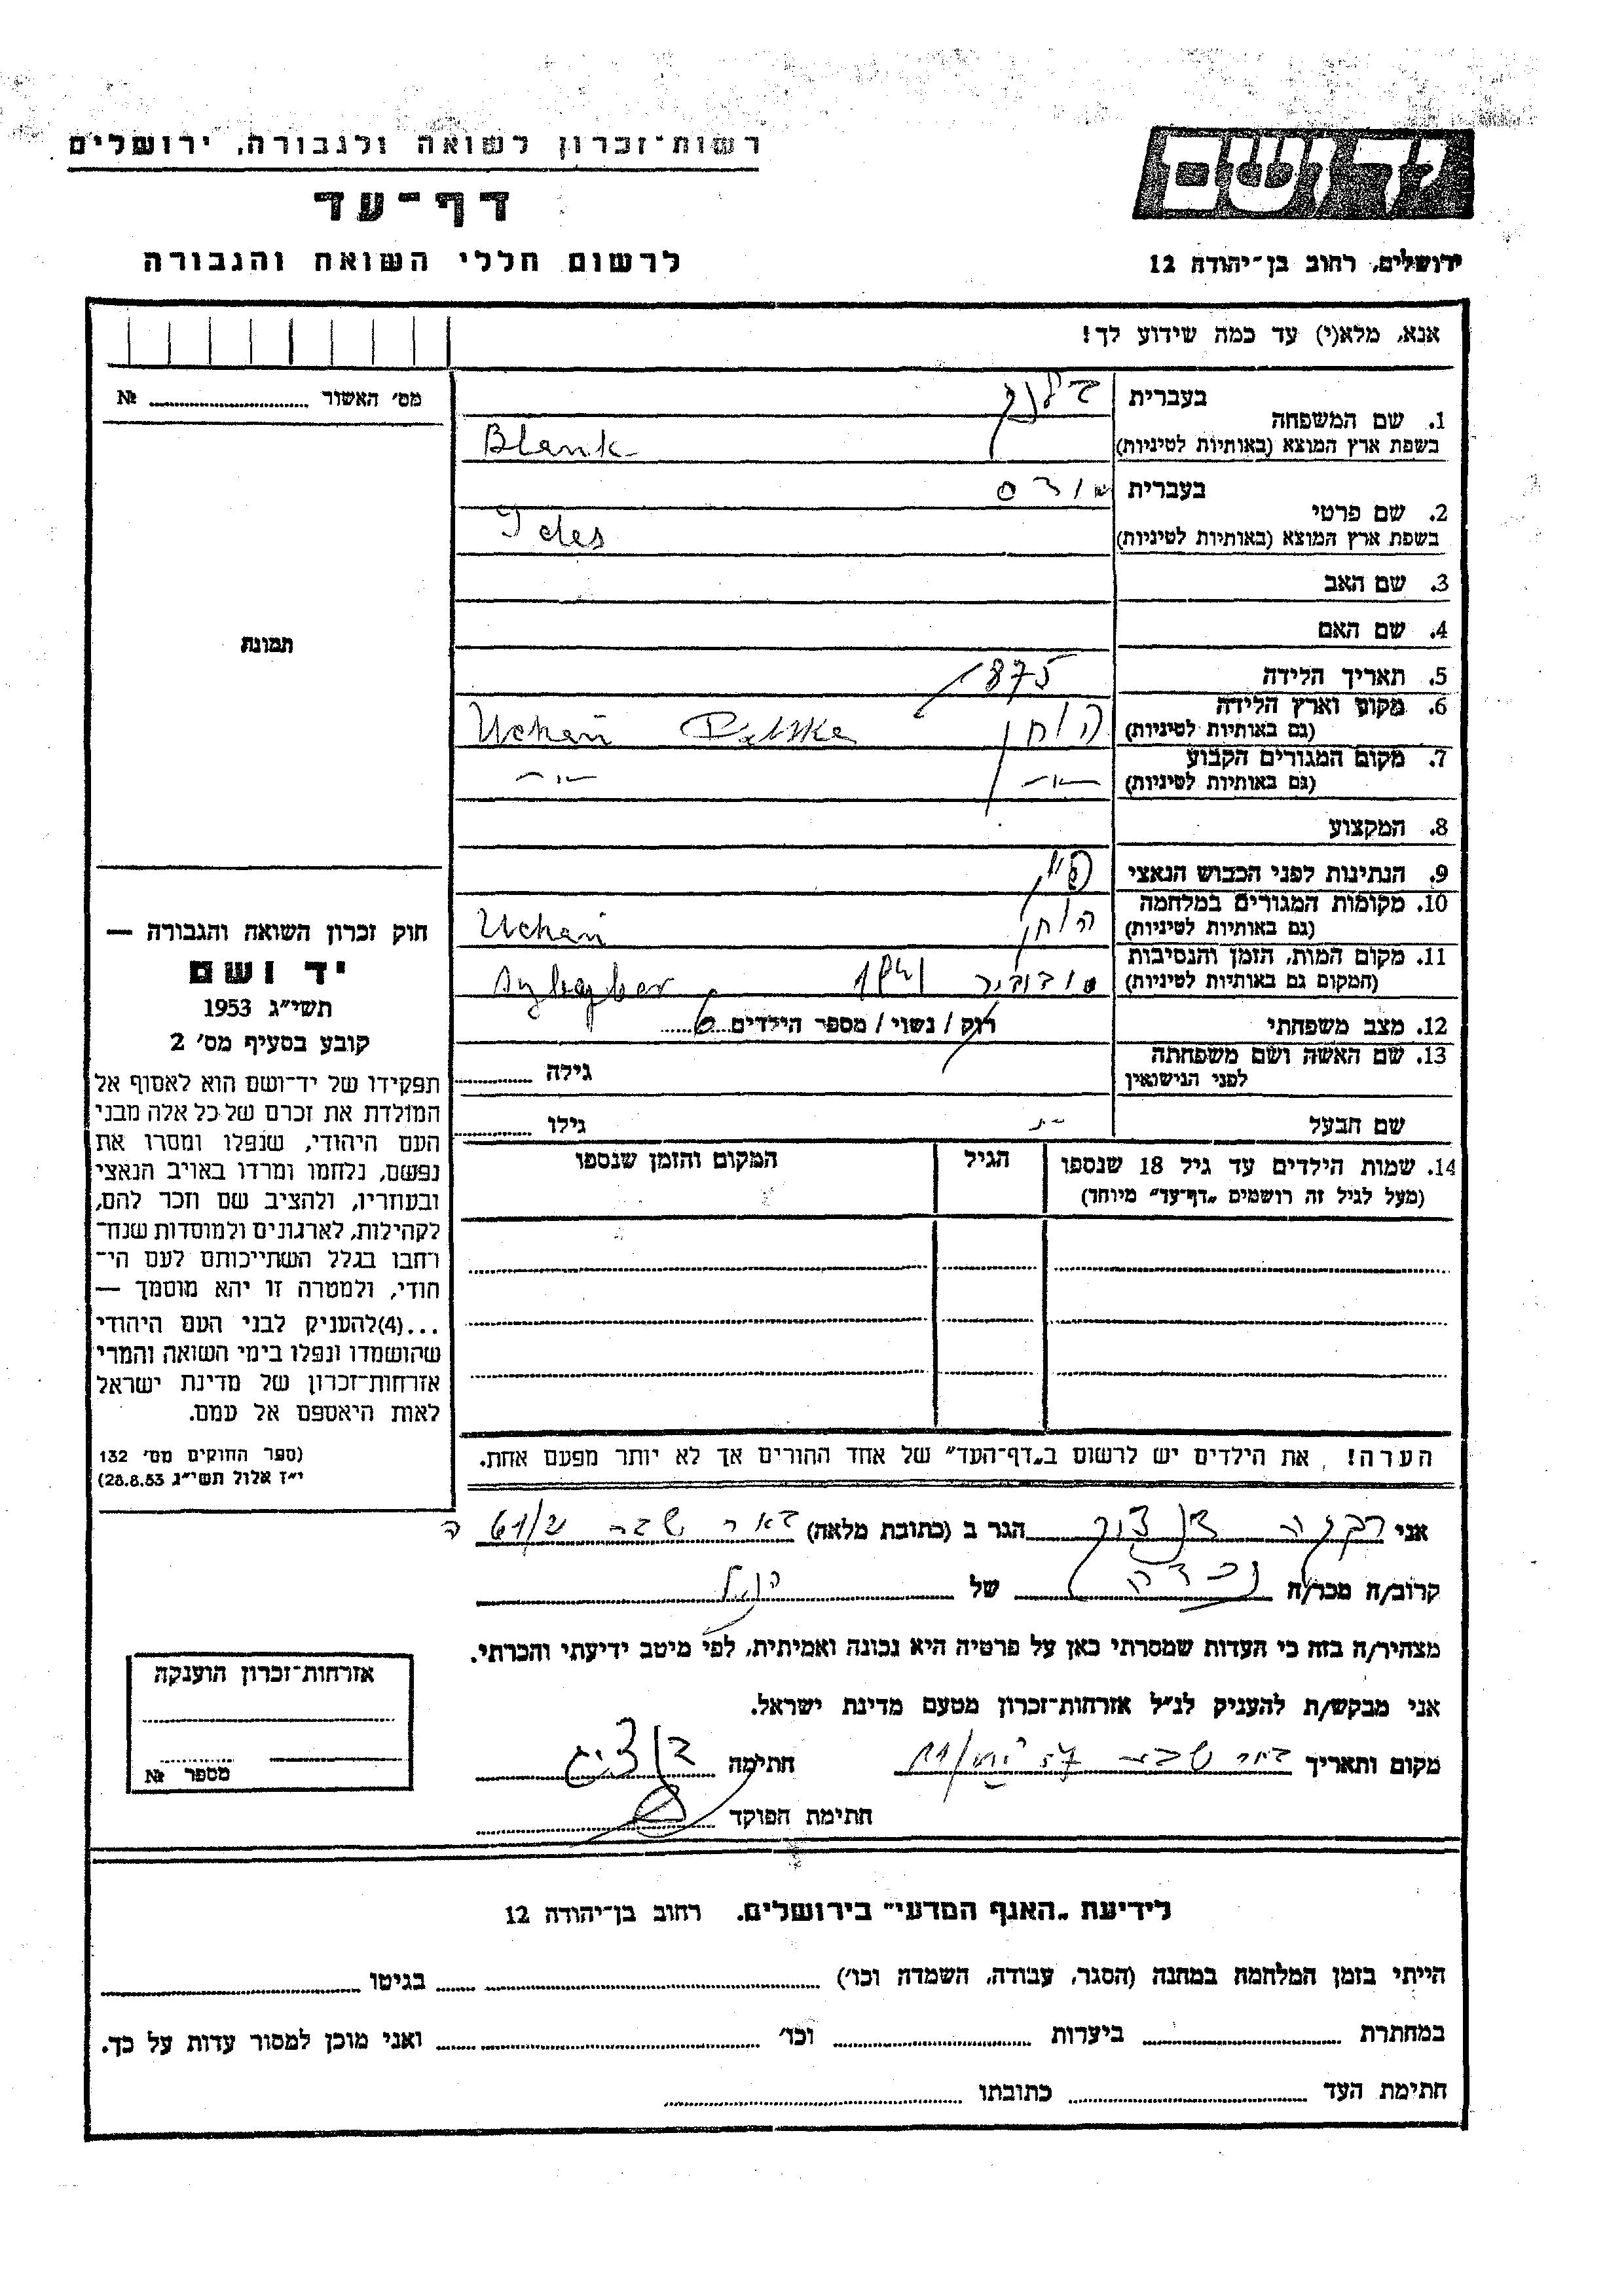 רשות־זכרון לשואה ולגבורה, ירושלים
דף־עד
לרשום חללי השואה והגבורה
יד ושם
ירושלים, רחוב בן־יהודה 12
אנא, מלא(י) עד כמה שידוע לך!
מס' האשור № 
1. שם המשפחה
בעברית בלנק
בשפת ארץ המוצא (באותיות לטיניות) Blank
2. שם פרטי
בעברית
בשפת ארץ המוצא (באותיות לטיניות) Ides
3. שם האב
4. שם האם
5. תאריך הלידה 1875
6. מקום וארץ הלידה
(גם באותיות לטיניות) Uchań Polska
7. מקום המגורים הקבוע
(גם באותיות לטיניות) -"- -"-
8. המקצוע
9. הנתינות לפני הכבוש הנאצי
10. מקומות המגורים במלחמה
(גם באותיות לטיניות) Uchań
11. מקום המות, הזמן והנסיבות
(המקום גם באותיות לטיניות) סובובור
12. מצב משפחתי רוק / נשוי / מספר הילדים 6
13. שם האשה ושם משפחתה
לפני הנישואין גילה
שם הבעל גילו
14. שמות הילדים עד גיל 18 שנספו הגיל המקום והזמן שנספו
(מעל לגיל זה רושמים „דף־עד" מיוחד)
הערה! את הילדים יש לרשום ב„דף־העד" של אחד ההורים אך לא יותר מפעם אחת.
תמונת
חוק זכרון השואה והגבורה —
יד ושם
תשי"ג 1953
קובע בסעיף מס' 2
תפקידו של יד־ושם הוא לאסוף אל
המולדת את זכרם של כל אלה מבני
העם היהודי, שנפלו ומסרו את
נפשם, נלחמו ומרדו באויב הנאצי
ובעוזריו, ולהציב שם וזכר להם,
לקהילות, לארגונים ולמוסדות שנח־
רחבו בגלל השתייכותם לעם הי־
הודי, ולמטרה זו יהא מוסמך —
...(4)להעניק לבני העם היהודי
שהושמדו ונפלו בימי השואה והמרי
אזרחות־זכרון של מדינת ישראל
לאות היאספם אל עמם.
(ספר החוקים מס' 132
י"ז אלול תשי"ג 28.8.53)
אני רבקה הגר ב (כתובת מלאה) באר שבע
קרוב/ה מכר/ה נכדה של הנ"ל
מצהיר/ה בזה כי העדות שמסרתי כאן על פרטיה היא נכונה ואמיתית, לפי מיטב ידיעתי והכרתי.
אני מבקש/ת להעניק לנ"ל אזרחות־זכרון מטעם מדינת ישראל.
מקום ותאריך באר שבע חתימה
חתימת הפוקד
אזרחות־זכרון הוענקה
מספר №
לידיעת „האגף המדעי" בירושלים. רחוב בן־יהודה 12
הייתי בזמן המלחמה במחנה (הסגר, עבודה, השמדה וכו') בגיטו
במחתרת ביערות וכו' ואני מוכן למסור עדות על כך.
חתימת העד כתובתו